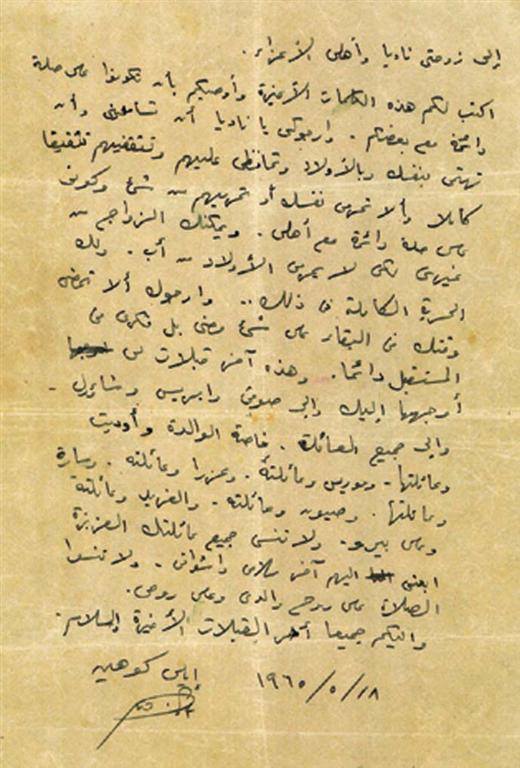 إلى زوجتي ناديا وأهلي الأعزاء.
اكتب لكم هذه الكلمات الأخيرة وأوصيكم بأن تكونوا على صلة
دائمة مع بعضكم. وارجوكي يا ناديا أن تسامحيني وأن
تهتمي بنفسك وبالأولاد وتحافظي عليهم وتثقفيهم تثقيفا
كاملا وألا تحرمي نفسك أو تحرميهم من شئ وكوني
على صلة دائمة مع أهلي. ويمكنك الزواج من
غيري لكي لا يحرم الأولاد من أب. ولك
الحرية الكاملة في ذلك.. وارجوك ألا تمضي
وقتك في البكاء على شئ مضى بل فكري في
المستقبل دائما. وهذه آخر قبلات لي
أوجهها إليك والى صوفي وايريس وشاؤول.
والى جميع العائلة. خاصة الوالدة وأوديت
وعائلتها. وموريس وعائلته. وعزرا وعائلته. وسارة
وعائلتها. وصيون وعائلته. وعائلته
ولا تنسي جميع عائلتك العزيزة
ابعثي اليهم آخر سلامي واشواقي. ولا تنسوا
الصلاة على روح والدي وعلى روحي.
واليكم جميعا أخر القبلات الأخيرة والسلام.
إيلي كوهين
١٩٦٥/٥/١٨